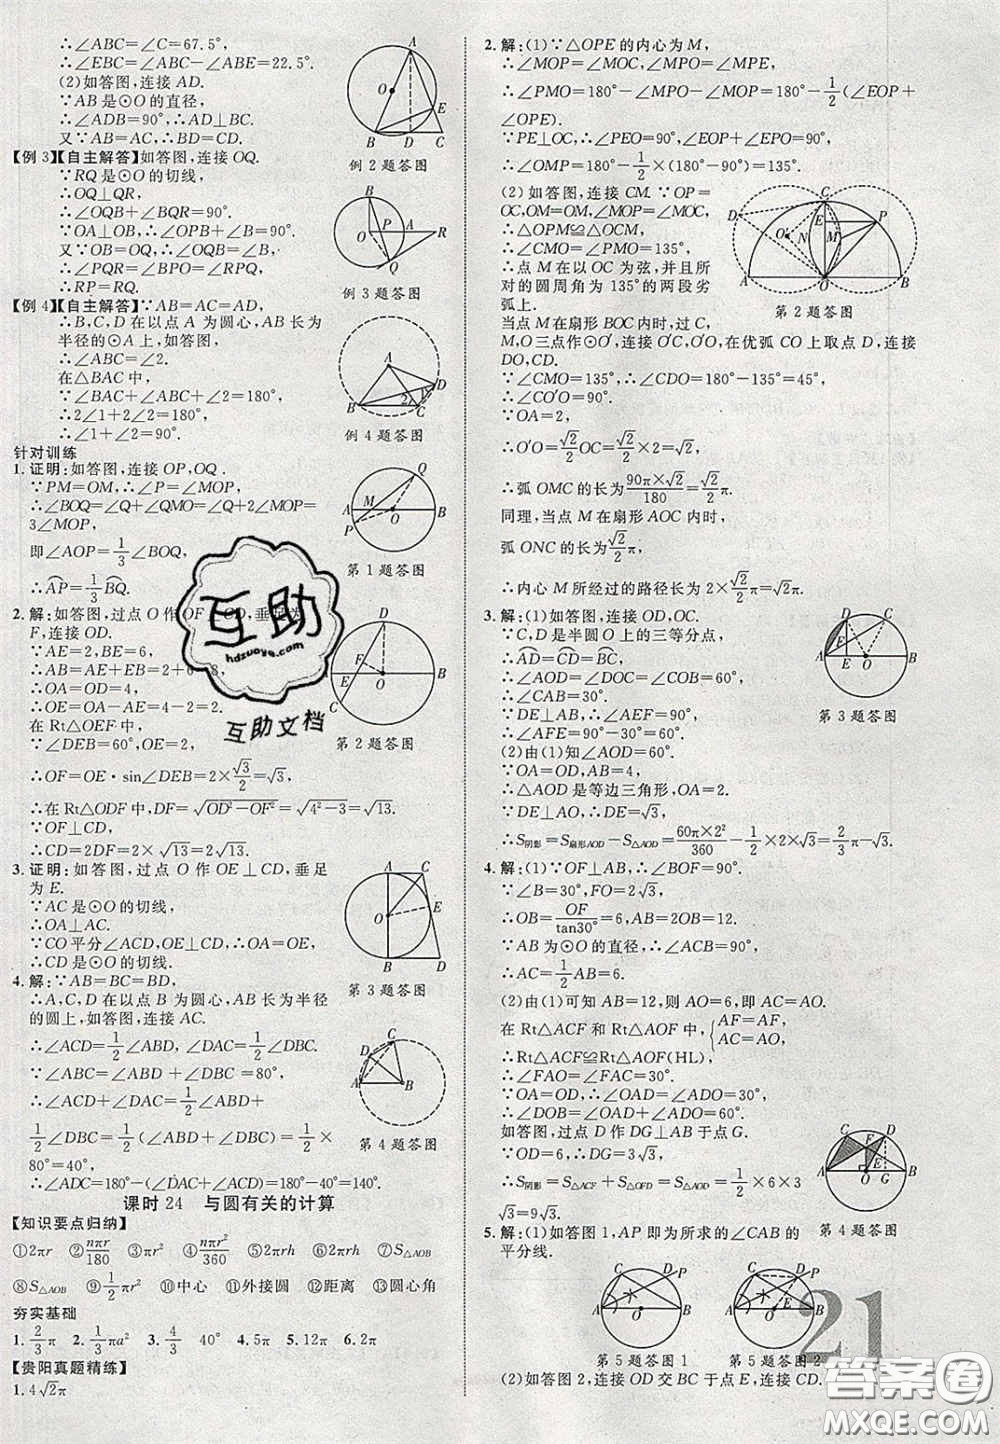 ∴∠ABC=∠C=67.5°,
∴∠EBC=∠ABC-∠ABE=22.5°.
(2)如答图,连接 AD.
∵AB是⊙O的直径,
∴∠ADB=90°,∴AD⊥BC.
又∵AB=AC,∴BD=DC.
例 2 题答图
【例 3】【自主解答】如答图,连接 OQ.
∵RQ是⊙O的切线,
∴OQ⊥QR,
∴∠OQB+∠BQR=90°.
∵OA⊥OB,∴∠OPB+∠B=90°.
又∵OB=OQ,∴∠OQB=∠B,
∴∠PQR=∠BPO=∠RPQ,
∴RP=RQ.
例 3 题答图
【例 4】【自主解答】∵AB=AC=AD,
∴B,C,D 在以点 A 为圆心,AB长为
半径的⊙A上,如答图,
∴∠ABC=∠2.
在△BAC中,
∵∠BAC+∠ABC+∠2=180°,
∴2∠1+2∠2=180°,
∴∠1+∠2=90°.
例 4 题答图
针对训练
1. 证明:如答图,连接 OP,OQ.
∵PM=OM,∴∠P=∠MOP,
∴∠BOQ=∠Q+∠QMO=∠Q+2∠MOP=
3∠MOP,
即∠AOP=1/3∠BOQ,
∴AP⌒=1/3BQ⌒.
第 1 题答图
2. 解:如答图,过点 O 作 OF⊥CD,垂足为
F,连接 OD.
∵AE=2,BE=6,
∴AB=AE+EB=2+6=8,
∴OA=OD=4,
∴OE=OA-AE=4-2=2.
在 Rt△OEF中,
∵∠DEB=60°,OE=2,
∴OF=OE·sin∠DEB=2×√3/2=√3,
∴在Rt△ODF中,DF=√(OD²-OF²)=√(4²-3)=√13.
∵OF⊥CD,
∴CD=2DF=2×√13=2√13.
第 2 题答图
3. 证明:如答图,过点 O 作 OE⊥CD,垂足
为 E.
∵AC是⊙O的切线,
∴OA⊥AC.
∵CO平分∠ACD,OE⊥CD,∴OA=OE,
∴CD是⊙O的切线.
第 3 题答图
4. 解:∵AB=BC=BD,
∴A,C,D 在以点 B 为圆心,AB长为半径
的圆上,如答图,连接 AC.
∴∠ACD=1/2∠ABD,∠DAC=1/2∠DBC.
∵∠ABC=∠ABD+∠DBC=80°,
∴∠ACD+∠DAC=1/2∠ABD+
1/2∠DBC=1/2(∠ABD+∠DBC)=1/2×
80°=40°,
∴∠ADC=180°-(∠ACD+∠DAC)=180°-40°=140°.
第 4 题答图
课时 24 与圆有关的计算
【知识要点归纳】
①2πr ②nπr/180 ③πr² ④nπr²/360 ⑤2πrh ⑥2πrh ⑦S△AOB
⑧S△AOB ⑨1/2πr² ⑩中心 ⑪外接圆 ⑫距离 ⑬圆心角
夯实基础
1. 2/3π 2. 1/3πa² 3. 4/3 40° 4. 5π 5. 12π 6. 2π
【贵阳真题精练】
1. 4√2π
2. 解:(1)∵△OPE的内心为M,
∴∠MOP=∠MOC,∠MPO=∠MPE,
∴∠PMO=180°-∠MPO-∠MOP=180°-1/2(∠EOP+
∠OPE).
∵PE⊥OC,∴∠PEO=90°,∠EOP+∠EPO=90°,
∴∠OMP=180°-1/2×(180°-90°)=135°.
(2)如答图,连接 CM.∵OP=
OC,OM=OM,∠MOP=∠MOC,
∴△OPM≌△OCM,
∴∠CMO=∠PMO=135°,
∴点 M 在以 OC 为弦,并且所
对的圆周角为135°的两段劣
弧上.
第 2 题答图
当点 M 在扇形 BOC 内时,过 C,
M,O三点作⊙O′,连接 O′C,O′O,在优弧 CO 上取点 D,连接
DO,CD.
∵∠CMO=135°,∴∠CDO=180°-135°=45°,
∴∠CO′O=90°.
∵OA=2,
∴O′O=√2/2OC=√2/2×2=√2,
∴弧 OMC 的长为90π×√2/180=√2/2π.
同理,当点 M 在扇形 AOC 内时,
弧 ONC 的长为√2/2π,
∴内心 M 所经过的路径长为 2×√2/2π=√2π.
3. 解:(1)如答图,连接OD,OC.
∵C,D是半圆 O 上的三等分点,
∴AD⌒=CD⌒=BC⌒,
∴∠AOD=∠DOC=∠COB=60°,
∴∠CAB=30°.
∵DE⊥AB,∴∠AEF=90°,
∴∠AFE=90°-30°=60°.
(2)由(1)知∠AOD=60°.
∵OA=OD,AB=4,
∴△AOD是等边三角形,OA=2.
∵DE⊥AO,∴DE=√3,
∴S阴影=S扇形AOD-S△AOD=60π×2²/360-1/2×2×√3=2/3π-√3.
第 3 题答图
4. 解:(1)∵OF⊥AB,∴∠BOF=90°.
∵∠B=30°,FO=2√3,
∴OB=OF/tan30°=6,AB=2OB=12.
∵AB为⊙O的直径,∴∠ACB=90°,
∴AC=1/2AB=6.
(2)由(1)可知 AB=12,则 AO=6,即 AC=AO.
在 Rt△ACF 和 Rt△AOF 中,{AF=AF, AC=AO,
∴Rt△ACF≌Rt△AOF(HL),
∴∠FAO=∠FAC=30°.
∵OA=OD,∴∠OAD=∠ADO=30°,
∴∠DOB=∠OAD+∠ADO=60°.
如答图,过点 D 作 DG⊥AB 于点 G.
∵OD=6,∴DG=3√3,
∴S阴影=S△ACF+S△AOD-S△AOF=S△AOD=1/2×6×3
√3=9√3.
第 4 题答图
5. 解:(1)如答图 1,AP 即为所求的∠CAB的
平分线.
第 5 题答图 1
第 5 题答图 2
(2)如答图 2,连接 OD 交 BC 于点 E,
21
互助
hdzuoye.com
互助文档
答案圈
MXQE.COM